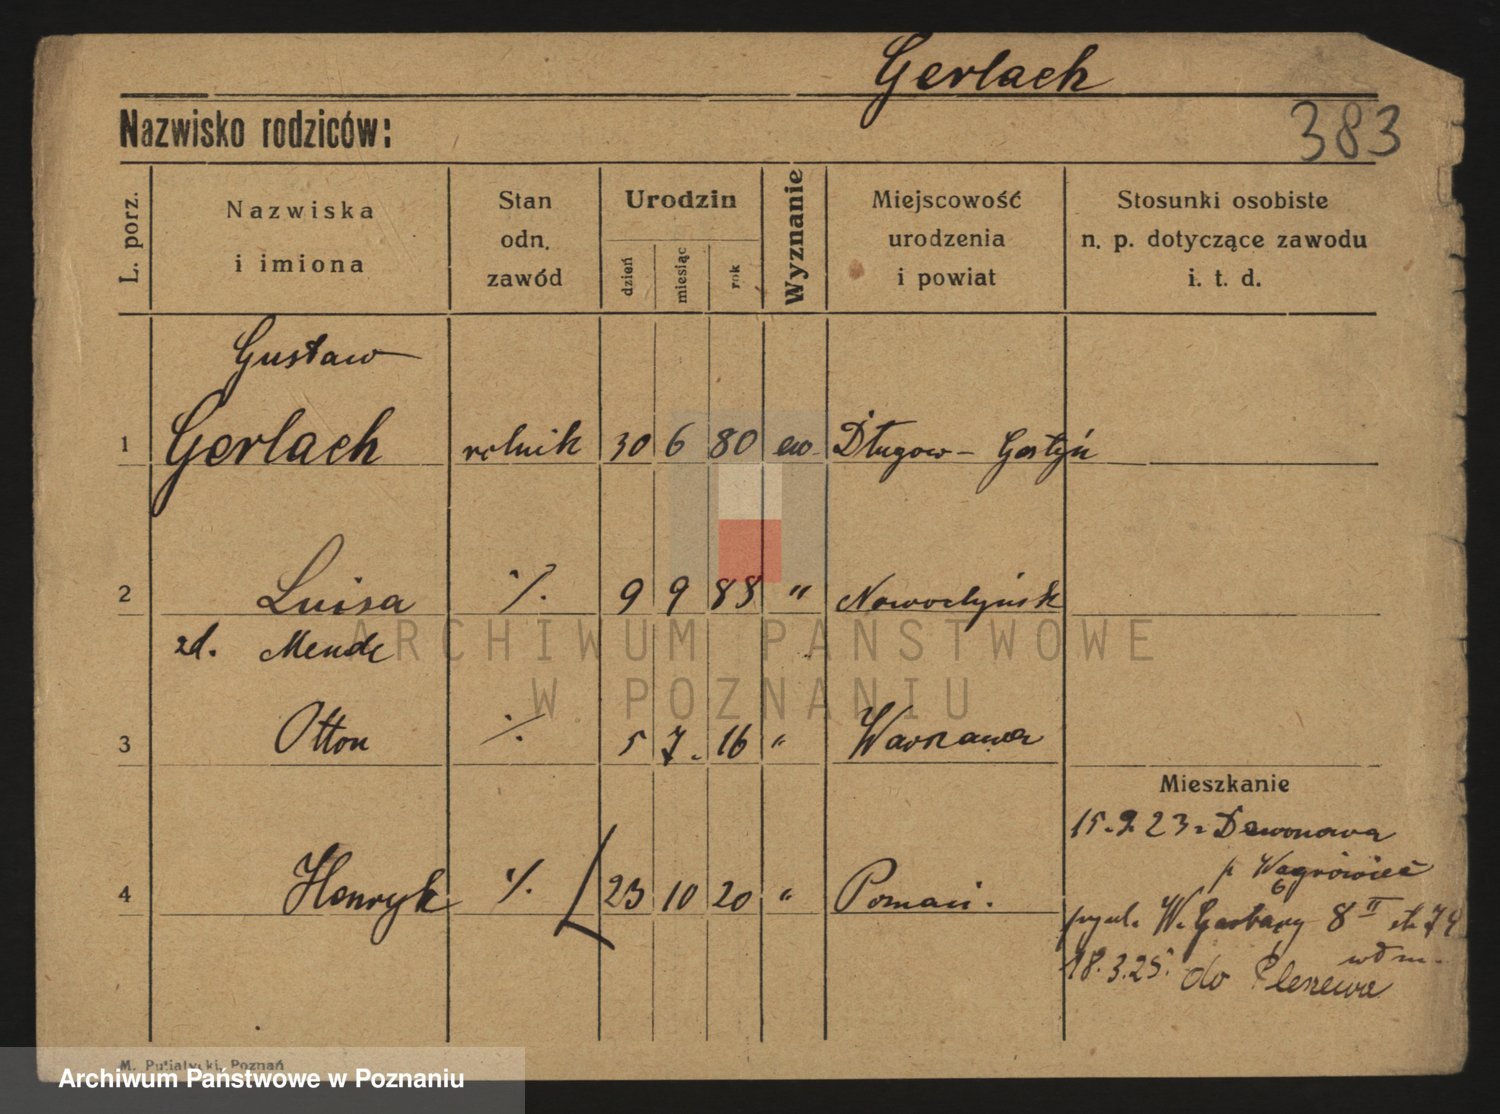 Gerlach
383
Nazwisko rodziców:
L. porz.
Nazwiska i imiona
Stan odn. zawód
Urodzin
dzień
miesiąc
rok
Wyznanie
Miejscowość urodzenia i powiat
Stosunki osobiste n. p. dotyczące zawodu i. t. d.
Gustaw
1 Gerlach rolnik 30 6 80 ew. Długow - Gostyń
2 Luisa ·/. 9 9 88 " Nowodyńsk
zd. Mende
3 Otton ·/. 5 7. 16 " Warszawa
Mieszkanie
15. 9. 23 z
p. Wągrówiec
4 Henryk ·/. 23 10 20 " Poznań.
W. Garbary 8 II
18. 3. 25. do Pleszewa
M. Putiatycki, Poznań
ARCHIWUM PAŃSTWOWE
W POZNANIU
Archiwum Państwowe w Poznaniu